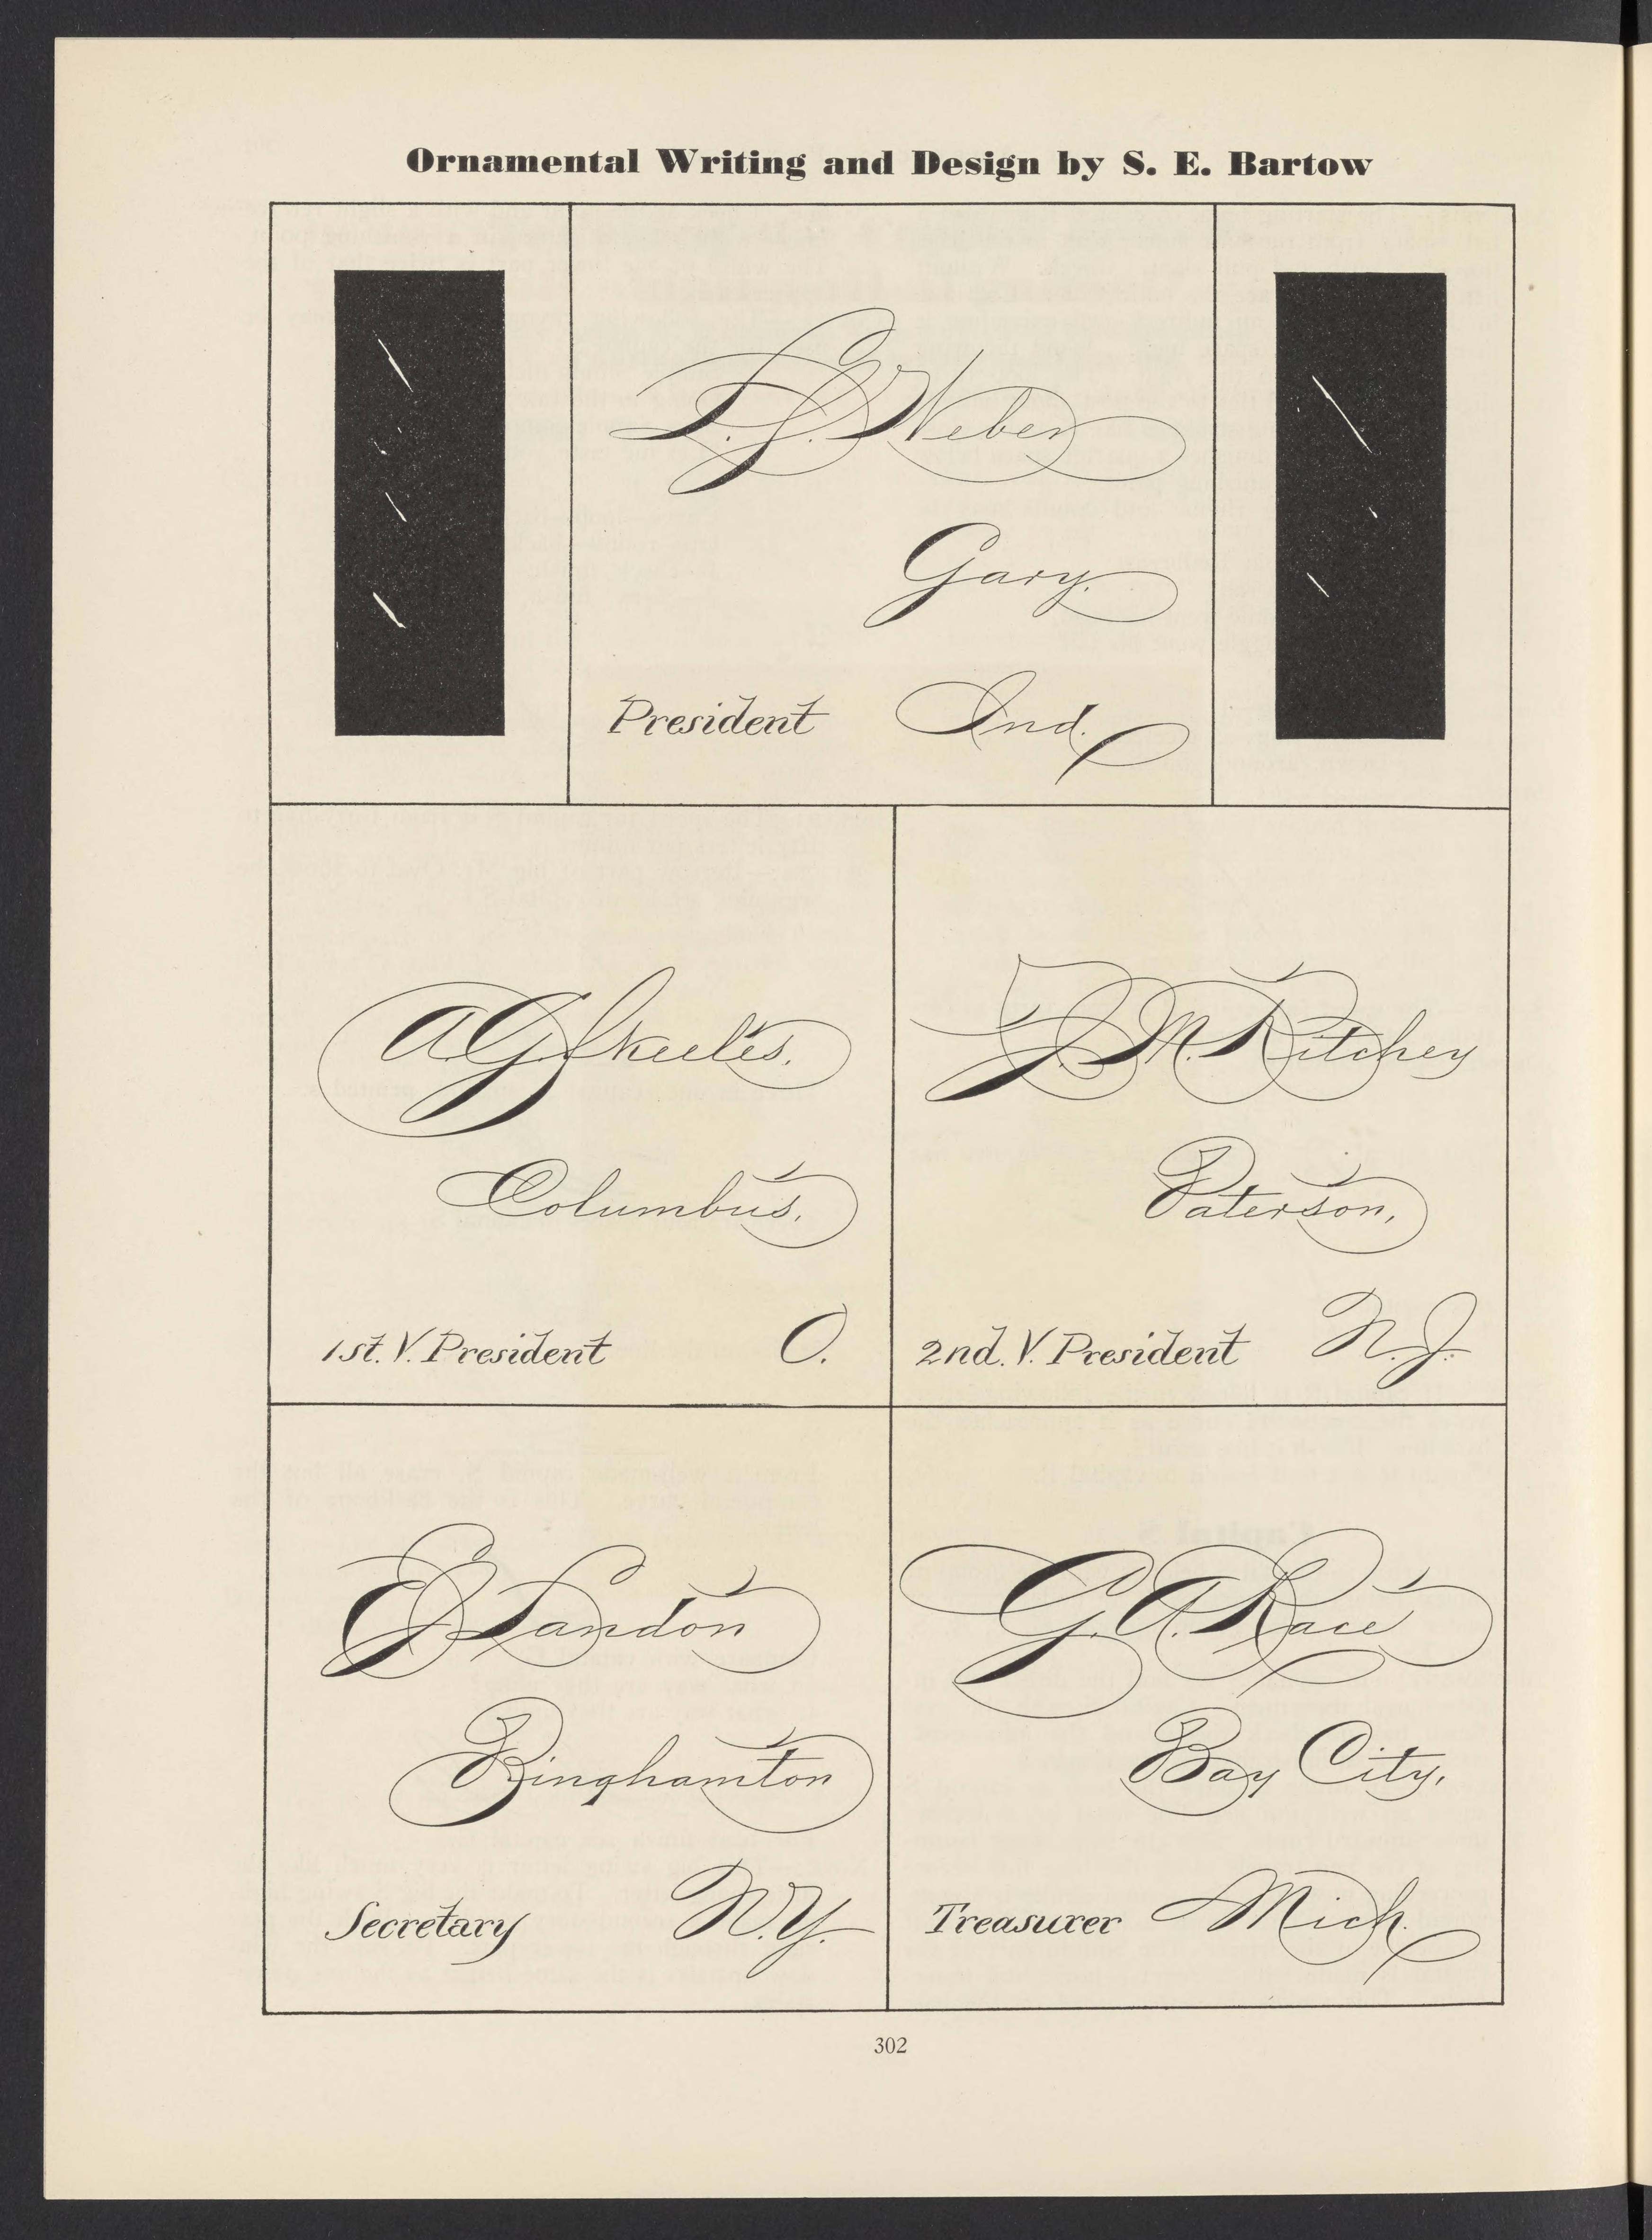 Ornamental Writing and Design by S. E. Bartow
L. G. Weber
Gary.
President Ind.
A G Skeeles.
Columbus,
1st. V. President O.
J. M. Ritchey
Paterson,
2nd. V. President N. J.
E G Landon
Binghamton
Secretary N.Y.
G. A. Race
Bay City,
Treasurer Mich.
302